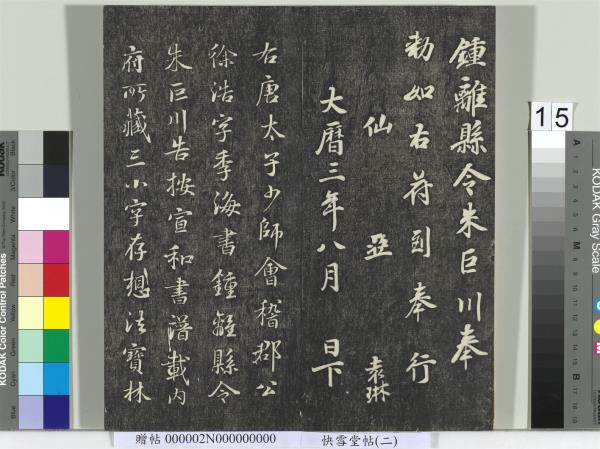 鍾離縣令朱巨川奉
勅如右符到奉行
仙 亞 袁琳
大曆三年八月 日下
右唐太子少師會稽郡公
徐浩字季海書鍾離縣令
朱巨川告按宣和書譜載內
府所藏三小字存想法寶林
15
KODAK Gray Scale
A
M
B
KODAK Color Control Patches
Blue
Cyan
Green
Yellow
Red
Magenta
White
3/Color
Black
贈帖 000002N000000000 快雪堂帖(二)